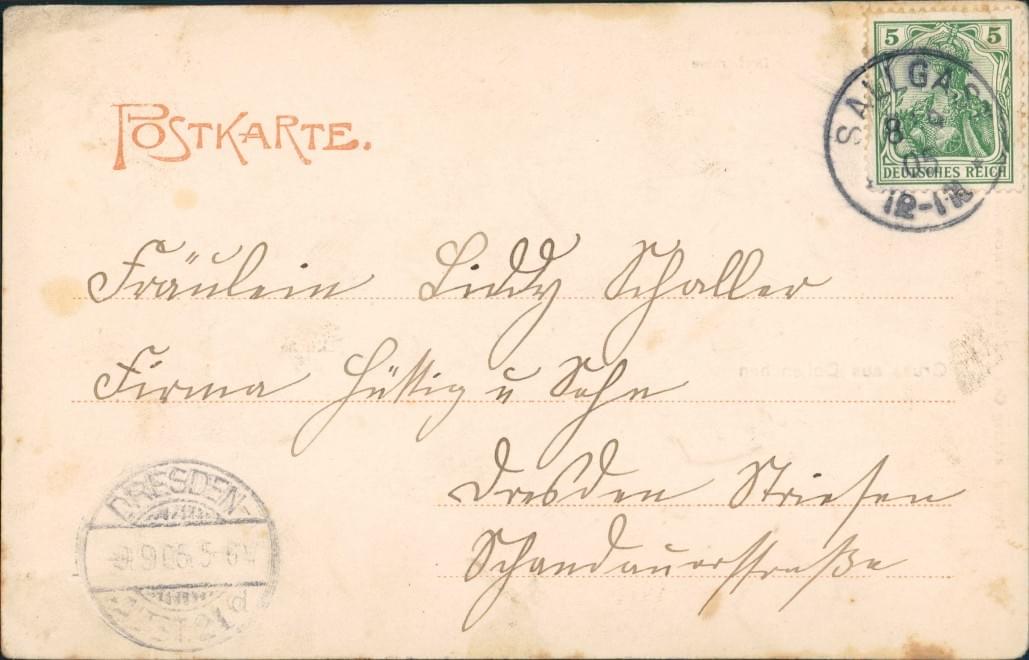 POSTKARTE.
5 5
DEUTSCHES REICH
SALLGAST
8 9
05
12-1N
Fräulein Liddy Schaller
Firma Hüttig u Sohn
Dresden Striesen
Schandauerstraße
DRESDEN-
9.9.05. 5-6V
Gruss aus